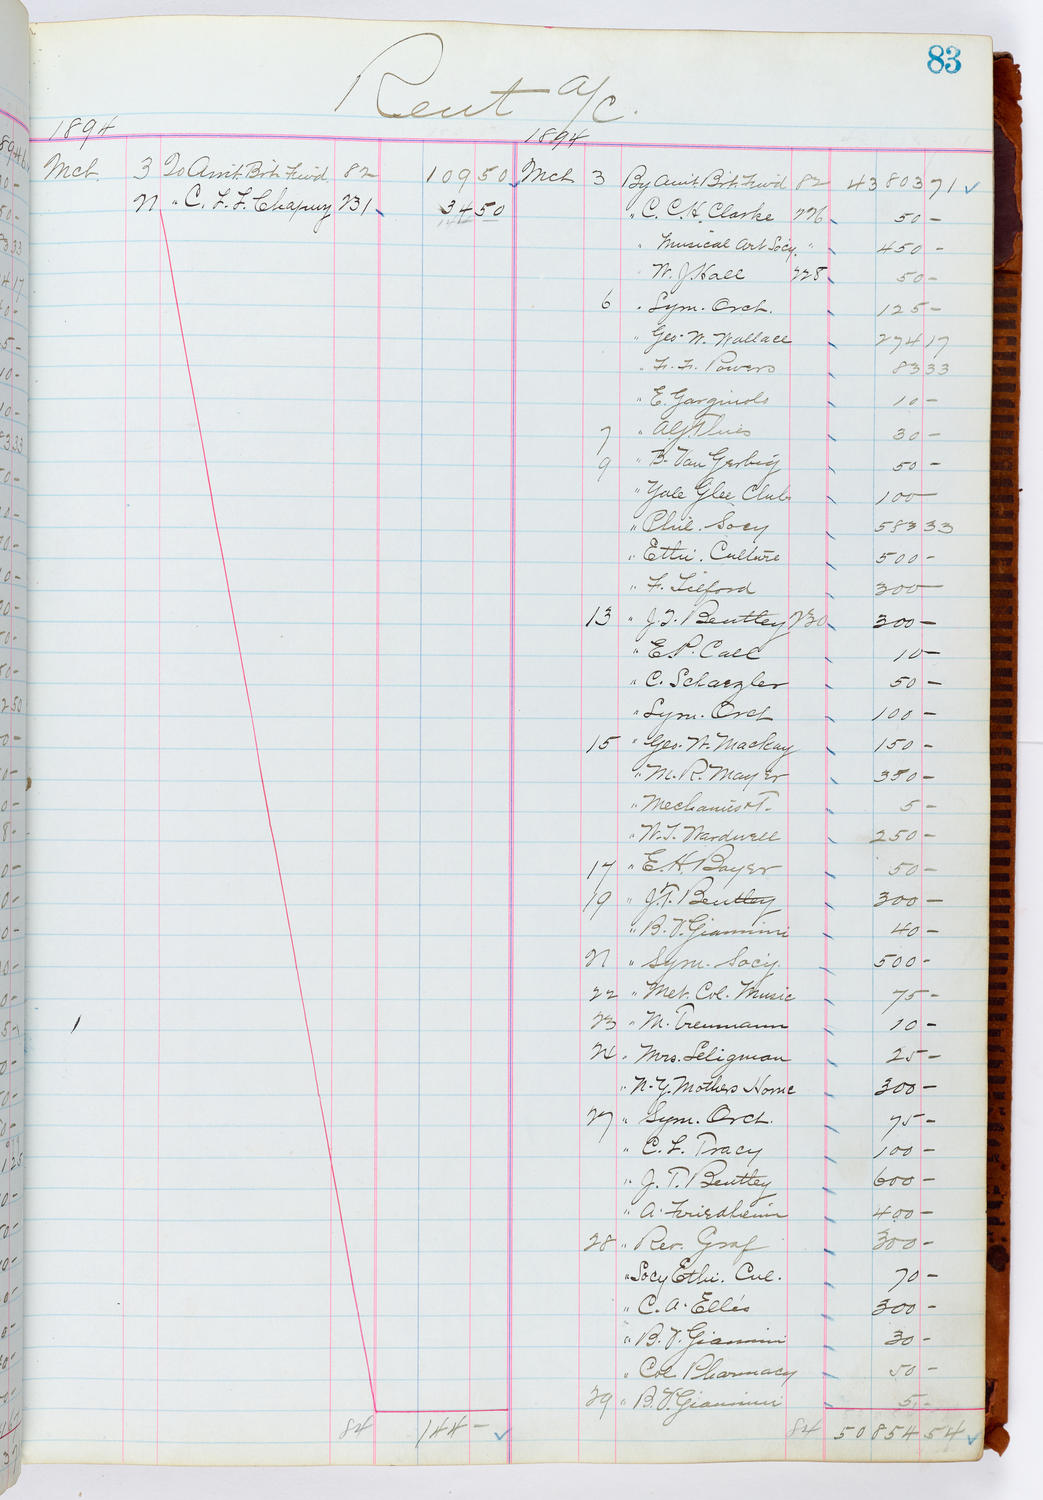 83
Rent a/c.
1894
Mch. 3 To Amt. Brt. Fwd. 82 109 50
21 " C. L. F. Chapuy 231 34 50
84 144 -
1894
Mch 3 By Amt Brt Fwd 82 43803 71
" C. C. H. Clarke 226 50 -
" Musical Art Socy. " 450 -
" W. J. Hall 228 50 -
6 " Sym. Orch. 125 -
" Geo. W. Wallace 274 17
" F. F. Powers 83 33
" E. 10 -
7 " 30 -
9 " B. Van Gerbig 50 -
" Yale Glee Club 100 -
" Phil. Socy 583 33
" Ethi. Culture 500 -
" F. Tilford 300 -
13 " J. T. Bentley 230 300 -
" E. P. Call 10 -
" C. Schaezler 50 -
" Sym. Orch 100 -
15 " Geo. W. Mackay 150 -
" M. R. Mayer 350 -
" Mechanics & T. 5 -
" W. T. Wardwell 250 -
17 " E. H. Boyer 50 -
19 " J. T. Bentley 300 -
" B. V. Giannini 40 -
21 " Sym. Socy. 500 -
22 " Met. Col. Music 75 -
23 " M. Treumann 10 -
24 " Mrs. Seligman 25 -
" N. Y. Mothers Home 300 -
27 " Sym. Orch. 75 -
" C. L. Tracy 100 -
" J. T. Bentley 600 -
" A. Friedheim 400 -
28 " Rev. Graf 300 -
" Socy Ethi. Cul. 70 -
" C. A. Ellis 300 -
" B. V. Giannini 30 -
" Col Pharmacy 50 -
29 " B. V. Giannini 5 -
84 50854 54